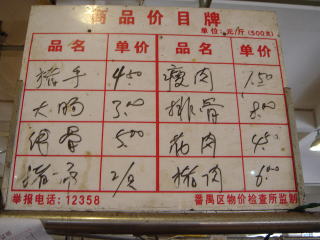 商品价目牌
单位:元/斤(500克)
品名 单价 品名 单价
猪手 4.50 瘦肉 7.50
大肠 3.00 排骨 8.00
5.00 4.50
6.00
举报电话:12358 番禺区物价检查所监制